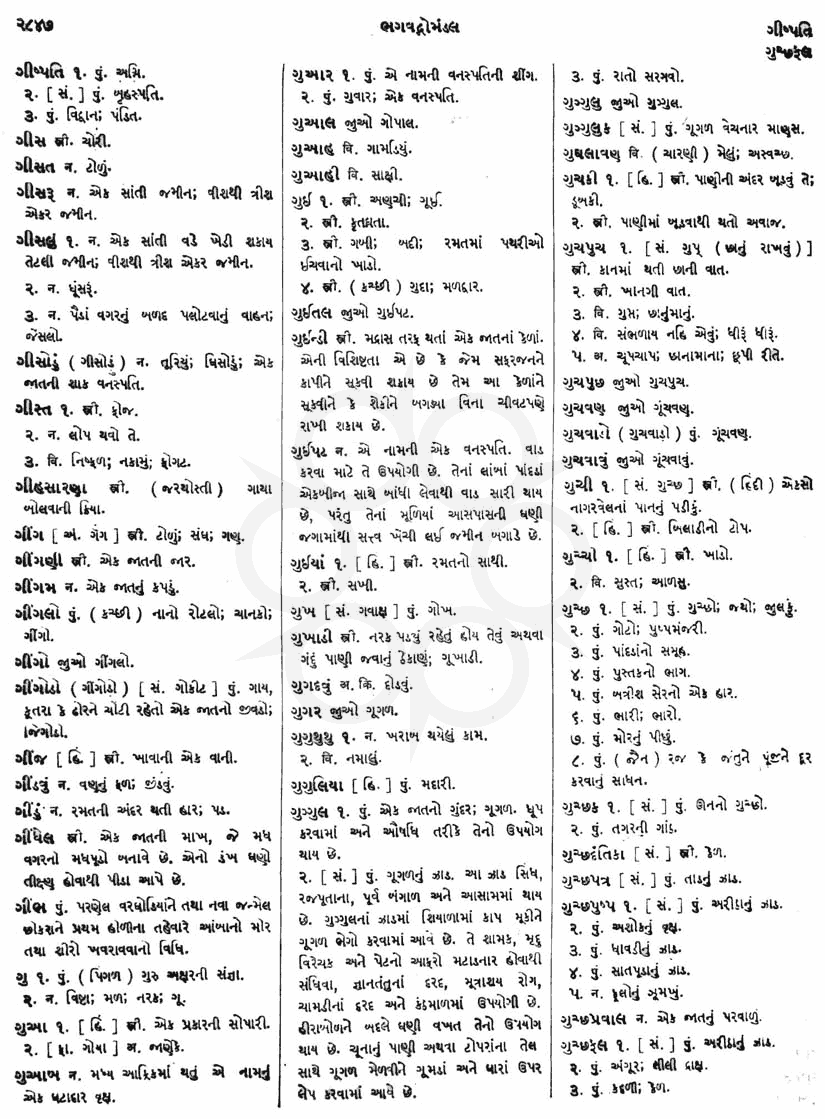 ૨૮૪૭
ભગવદ્ગોમંડલ
ગીષ્પતિ
ગુચ્છફલ
ગીષ્પતિ ૧. પું. અગ્નિ.
૨. [ સં. ] પું. બૃહસ્પતિ.
૩. પું. વિદ્વાન; પંડિત.
ગીસ સ્ત્રી. ચોરી.
ગીસત ન. ટોળું.
ગીસરૂ ન. એક સાંતી જમીન; વીશથી ત્રીશ
એકર જમીન.
ગીસલું ૧. ન. એક સાંતી વડે ખેડી શકાય
તેટલી જમીન; વીશથી ત્રીશ એકર જમીન.
૨. ન. ધૂંસરૂં.
૩. ન. પૈડાં વગરનું બળદ પલોટવાનું વાહન;
જેંસલો.
ગીસોડું ( ગીસોડું ) ન. તૂરિયું; ઘિસોડું; એક
જાતની શાક વનસ્પતિ.
ગીસ્ત ૧. સ્ત્રી. ફોજ.
૨. ન. લોપ થવો તે.
૩. વિ. નિષ્ફળ; નકામું; ફોગટ.
ગીહસારણા સ્ત્રી. ( જરથોસ્તી ) ગાથા
બોલવાની ક્રિયા.
ગીંગ [ અં. ગેંગ ] સ્ત્રી. ટોળું; સંઘ; ગણુ.
ગીંગણી સ્ત્રી. એક જાતની જાર.
ગીંગમ ન. એક જાતનું કપડું.
ગીંગલો પું. ( કચ્છી ) નાનો રોટલો; ચાનકો;
ગીંગો.
ગીંગો જુઓ ગીંગલો.
ગીંગોડો ( ગીંગોડો ) [ સં. ગોકીટ ] પું. ગાય,
કૂતરા કે ઢોરને ચોટી રહેતો એક જાતનો જીવડો;
જિંગોડો.
ગીંજ [ હિં. ] સ્ત્રી. ખાવાની એક વાની.
ગીંડવું ન. વણનું ફળ; જીંડવું.
ગીંડું ન. રમતની અંદર થતી હાર; પડ.
ગીંધેલ સ્ત્રી. એક જાતની માખ, જે મધ
વગરનો મધપૂડો બનાવે છે. એનો ડંખ ઘણો
તીક્ષ્ણ હોવાથી પીડા આપે છે.
ગીંભ પું. પરણેલ વરઘોડિયાંને તથા નવા જન્મેલ
છોકરાને પ્રથમ હોળીના તહેવારે આંબાનો મોર
તથા શીરો ખવરાવવાનો વિધિ.
ગુ ૧. પું. ( પિંગળ ) ગુરુ અક્ષરની સંજ્ઞા.
૨. ન. વિષ્ટા; મળ; નરક; ગૂ.
ગુઆ ૧. [ હિં. ] સ્ત્રી. એક પ્રકારની સોપારી.
૨. [ ફા. ગોયા ] અ. જાણેકે.
ગુઆબ ન. મધ્ય આફ્રિકામાં થતું એ નામનું
એક ઘટાદાર વૃક્ષ.
ગુઆર ૧. પું. એ નામની વનસ્પતિની શીંગ.
૨. પું. ગુવાર; એક વનસ્પતિ.
ગુઆલ જુઓ ગોપાલ.
ગુઆહ વિ. ગામડિયું.
ગુઆહી વિ. સાક્ષી.
ગુઈ ૧. સ્ત્રી. અણુચી; ગૂઈ.
૨. સ્ત્રી. કૃતઘ્નતા.
૩. સ્ત્રી. ગબી; બદી; રમતમાં પથરીઓ
ઈચવાનો ખાડો.
૪. સ્ત્રી. ( કચ્છી ) ગુદા; મળદ્વાર.
ગુઈતલ જુઓ ગુઈપટ.
ગુઈન્ડી સ્ત્રી. મદ્રાસ તરફ થતાં એક જાતનાં કેળાં.
એની વિશિષ્ટતા એ છે કે જેમ સફરજનને
કાપીને સૂકવી શકાય છે તેમ આ કેળાંને
સૂકવીને કે શેકીને બગડ્યા વિના ચીવટપણે
રાખી શકાય છે.
ગુઈપટ ન. એ નામની એક વનસ્પતિ. વાડ
કરવા માટે તે ઉપયોગી છે. તેનાં લાંબાં પાંદડાં
એકબીજા સાથે બાંધી લેવાથી વાડ સારી થાય
છે, પરંતુ તેનાં મૂળિયાં આસપાસની ઘણી
જગામાંથી સત્ત્વ ખેંચી લઈ જમીન બગાડે છે.
ગુઈયાં ૧. [ હિં. ] સ્ત્રી. રમતનો સાથી.
૨. સ્ત્રી. સખી.
ગુખ [ સં. ગવાક્ષ ] પું. ગોખ.
ગુખાડી સ્ત્રી. નરક પડ્યું રહેતું હોય તેવું અથવા
ગંદું પાણી જવાનું ઠેકાણું; ગૂખાડી.
ગુગદવું અ. ક્રિ. દોડવું.
ગુગર જુઓ ગૂગળ.
ગુગુથુથુ ૧. ન. ખરાબ થયેલું કામ.
૨. વિ. નમાલું.
ગુગુલિયા [ હિં. ] પું. મદારી.
ગુગ્ગુલ ૧. પું. એક જાતનો ગુંદર; ગૂગળ. ધૂપ
કરવામાં અને ઔષધિ તરીકે તેનો ઉપયોગ
થાય છે.
૨. [ સં. ] પું. ગૂગળનું ઝાડ. આ ઝાડ સિંધ,
રજપૂતાના, પૂર્વ બંગાળ અને આસામમાં થાય
છે. ગુગ્ગુલનાં ઝાડમાં શિયાળામાં કાપ મૂકીને
ગૂગળ ભેગો કરવામાં આવે છે. તે શામક, મૃદુ
વિરેચક અને પેટનો આફરો મટાડનાર હોવાથી
સંધિવા, જ્ઞાનતંતુનાં દરદ, મૂત્રાશય રોગ,
ચામડીનાં દરદ અને કંઠમાળમાં ઉપયોગી છે.
હીરાબોળને બદલે ઘણી વખત તેનો ઉપયોગ
થાય છે. ચૂનાનું પાણી અથવા ટોપરાંના તેલ
સાથે ગૂગળ મેળવીને ગૂમડાં અને ધારાં ઉપર
લેપ કરવામાં આવે છે.
૩. પું. રાતો સરગવો.
ગુગ્ગુલુ જુઓ ગુગ્ગુલ.
ગુગ્ગુલુક [ સં. ] પું. ગૂગળ વેચનાર માણસ.
ગુઘલાવણુ વિ. ( ચારણી ) મેલું; અસ્વચ્છ.
ગુચકી ૧. [ હિં. ] સ્ત્રી. પાણીની અંદર બૂડવું તે;
ડૂબકી.
૨. સ્ત્રી. પાણીમાં બૂડવાથી થતો અવાજ.
ગુચપુચ ૧. [ સં. ગુપ્ ( છાનું રાખવું ) ]
સ્ત્રી. કાનમાં થતી છાની વાત.
૨. સ્ત્રી. ખાનગી વાત.
૩. વિ. ગુપ્ત; છાનુંમાનું.
૪. વિ. સંભળાય નહિ એવું; ધીરૂં ધીરૂં.
૫. અ. ચૂપચાપ; છાનામાના; છૂપી રીતે.
ગુચપુછ જુઓ ગુચપુચ.
ગુચવણ જુઓ ગૂંચવણ.
ગુચવાડો ( ગુચવાડો ) પું. ગૂંચવણ.
ગુચવાવું જુઓ ગૂંચવાવું.
ગુચી ૧. [ સં. ગુચ્છ ] સ્ત્રી. ( હિંદી ) એકસો
નાગરવેલનાં પાનનું પડીકું.
૨. [ હિં. ] સ્ત્રી. બિલાડીનો ટોપ.
ગુચ્ચો ૧. [ હિં. ] સ્ત્રી. ખાડો.
૨. વિ. સુસ્ત; આળસુ.
ગુચ્છ ૧. [ સં. ] પું. ગુચ્છો; જથો; જુલકું.
૨. પું. ગોટો; પુષ્પમંજરી.
૩. પું. પાંદડાંનો સમૂહ.
૪. પું. પુસ્તકનો ભાગ.
૫. પું. બત્રીશ સેરનો એક હાર.
૬. પું. ભારી; ભારો.
૭. પું. મોરનું પીછું.
૮. પું. ( જૈન ) રજ કે જંતુને પૂંજીને દૂર
કરવાનું સાધન.
ગુચ્છક ૧. [ સં. ] પું. ઊનનો ગુચ્છો.
૨. પું. તગરની ગાંઠ.
ગુચ્છદંતિકા [ સં. ] સ્ત્રી. કેળ.
ગુચ્છપત્ર [ સં. ] પું. તાડનું ઝાડ.
ગુચ્છપુષ્પ ૧. [ સં. ] પું. અરીઠાનું ઝાડ.
૨. પું. અશોકનું વૃક્ષ.
૩. પું. ધાવડીનું ઝાડ.
૪. પું. સાતપૂડાનું ઝાડ.
૫. ન. ફૂલોનું ઝૂમખું.
ગુચ્છપ્રવાલ ન. એક જાતનું પરવાળું.
ગુચ્છફલ ૧. [ સં. ] પું. અરીઠાનું ઝાડ.
૨. પું. અંગૂર; લીલી દ્રાક્ષ.
૩. પું. કદળી; કેળ.